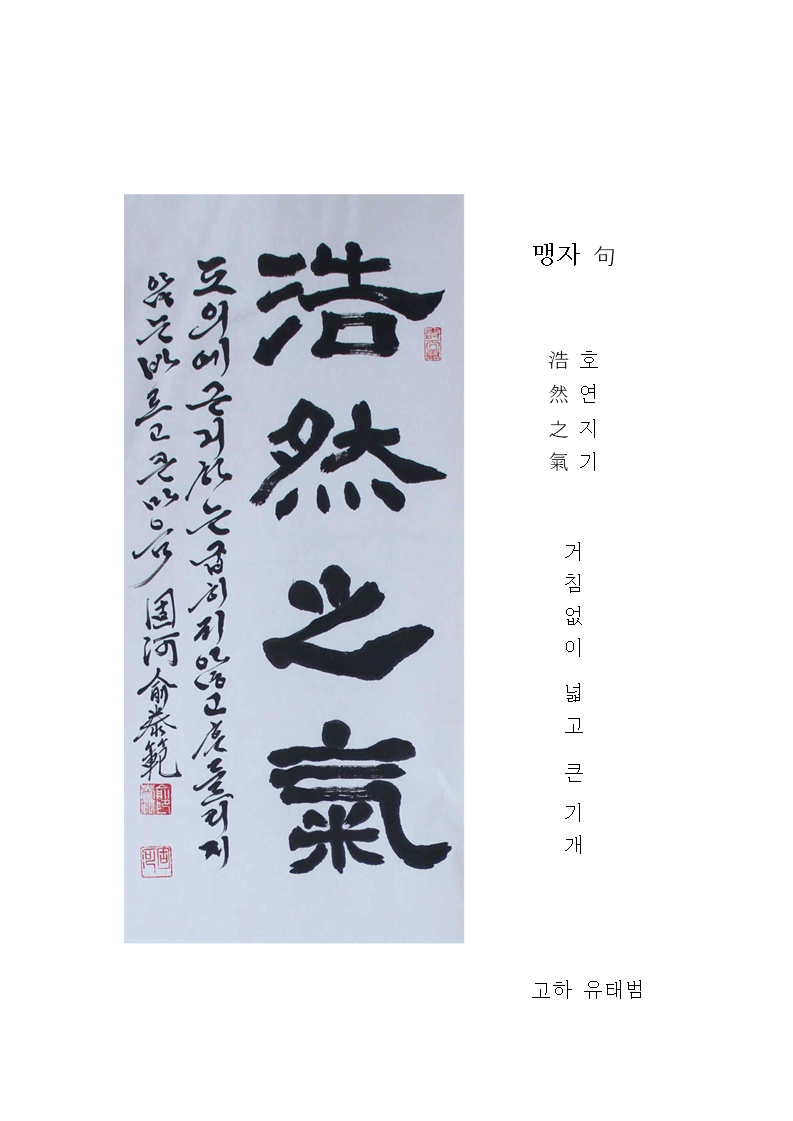 浩然之氣
도의에근거하는굽히지않고흔들리지
않는바르고큰마음 固河 兪泰範
맹자 句
浩 호
然 연
之 지
氣 기
거침없이 넓고 큰 기개
고하 유태범